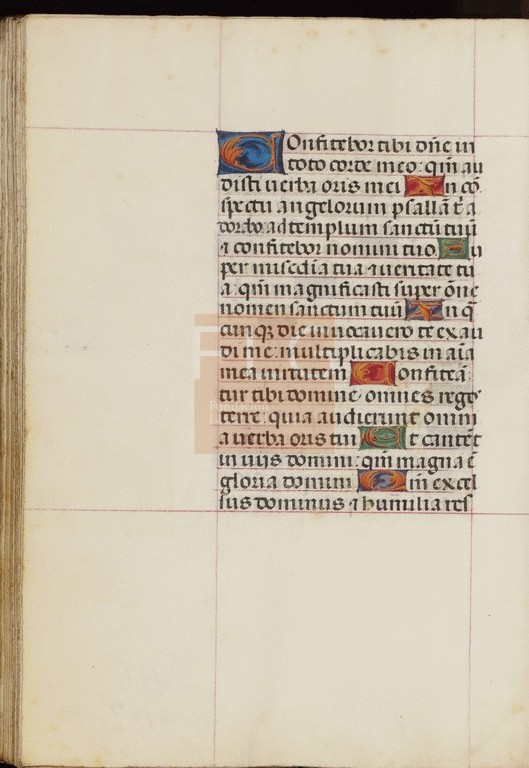 Confitebor tibi dñe in
toto corde meo: qm̃ au
disti uerba oris mei In cõ
spectu angelorum psallã t̃ a
dorabo ad templum sanctũ tuũ
⁊ confitebor nomini tuo. Su
per misc̃dia tua ⁊ ueritate tu
a: qm̃ magnificasti super õne
nomen sanctum tuũ In q̃
cunqꝫ die inuocauero te exau
di me: multiplicabis in aĩa
mea uirtutem Confiteã
tur tibi domine omnes rege
terre: quia audierunt omni
a uerba oris tui Et cantẽt
in uiis domini: qm̃ magna ẽ
gloria domini Qm̃ excel
sus dominus ⁊ humilia res